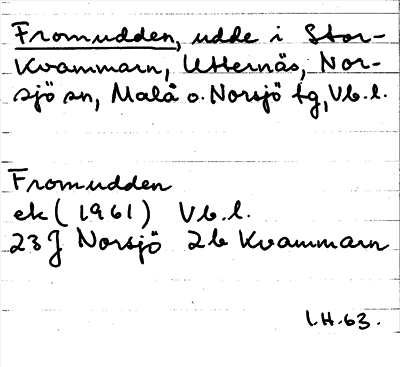 Fromudden, udde i Stor-
Kvammarn, Utternäs, Nor-
sjö sn, Malå o. Norsjö tg, Vb.l.
Fromudden
ek (1961) Vb.l.
23J Norsjö 2b Kvammarn
I.H.63.